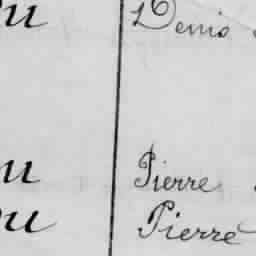 Du Denis
Du Pierre
Du Pierre